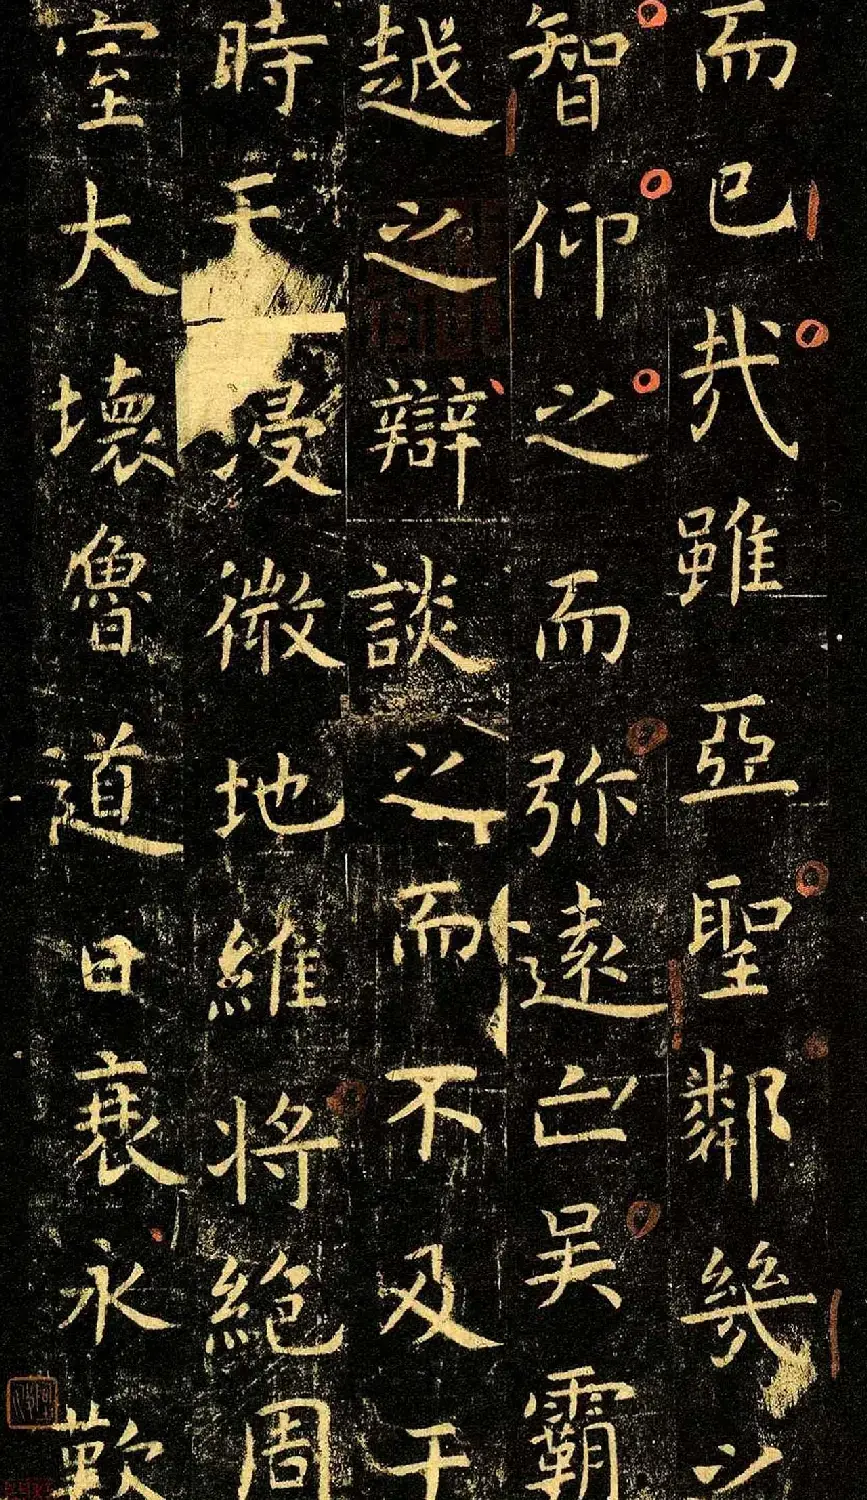 而已哉雖亞聖鄰幾以
智仰之而弥遠亡吴霸
越之辯談之而不及于
時天浸微地維将絶周
室大壞魯道日衰永歎